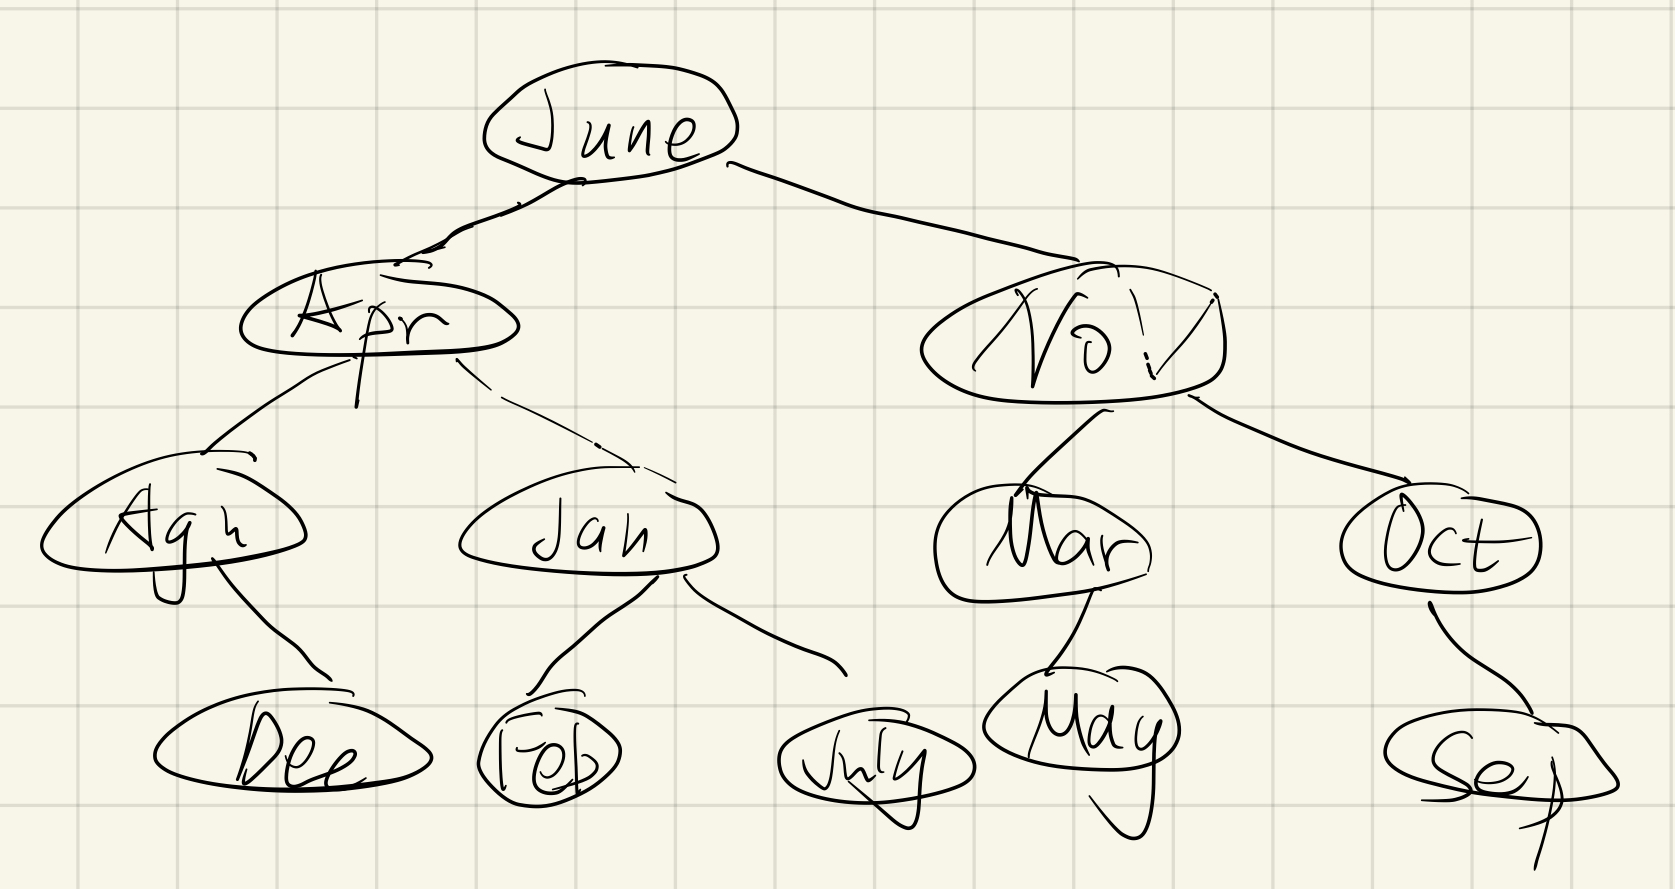 June
Apr
Nov
Agn
Jan
Mar
Oct
Dee
Feb
July
May
Sep